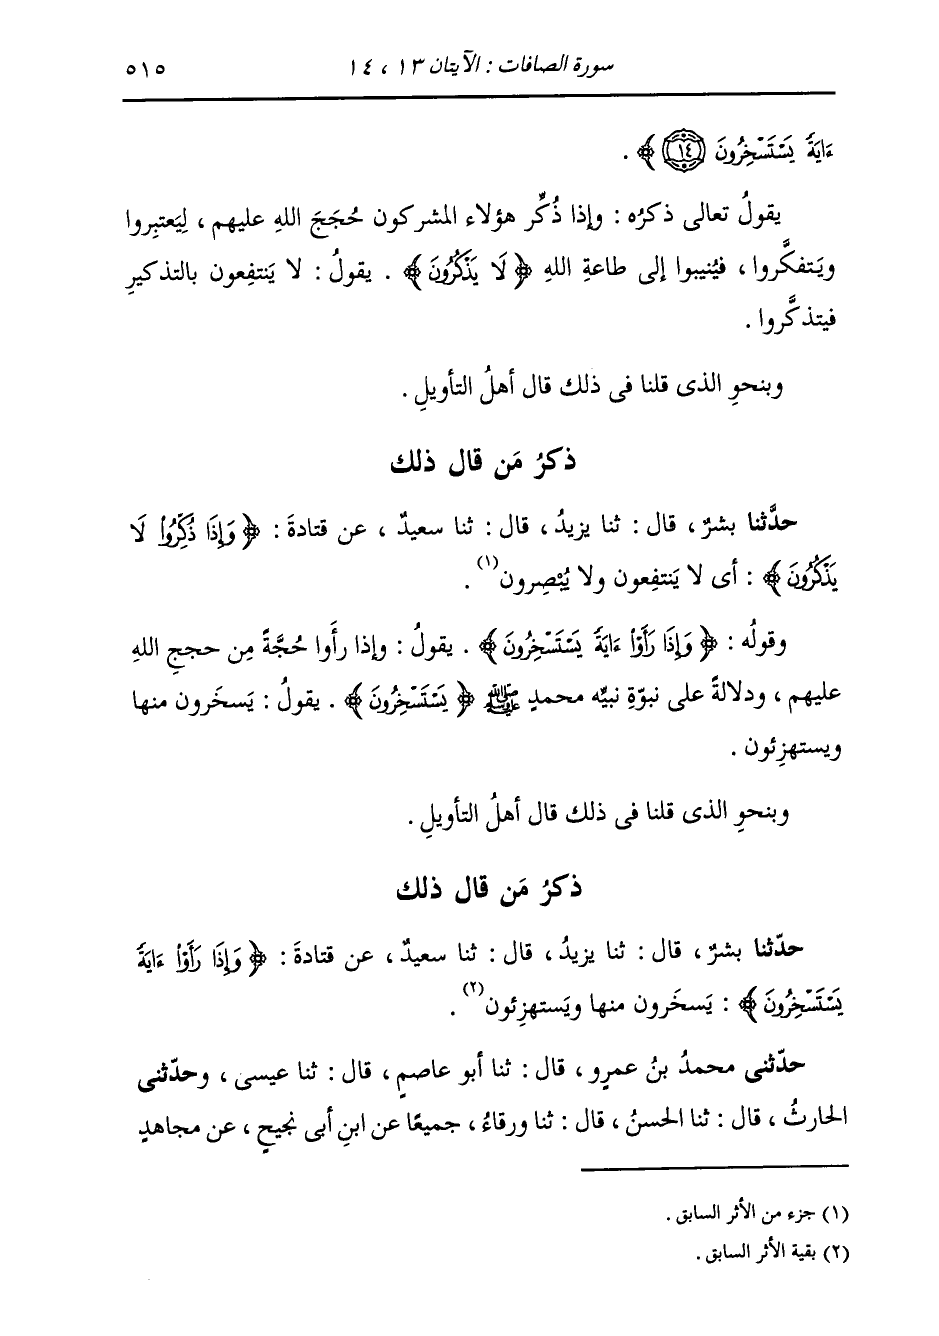 سورة الصافات : الآيتان ١٣ ، ١٤ ٥١٥
ءَايَةً يَسْتَسْخِرُونَ ﴿١٤﴾ ﴾ .
يقولُ تعالى ذكرُه : وإذا ذُكِّر هؤلاء المشركون حُجَجَ اللهِ عليهم ، لِيَعتبِروا
ويَتفكَّروا ، فيُنيبوا إلى طاعةِ اللهِ ﴿ لَا يَذْكُرُونَ ﴾ . يقولُ : لا يَنتفِعون بالتذكيرِ
فيتذكَّروا .
وبنحوِ الذى قلنا فى ذلك قال أهلُ التأويلِ .
ذكرُ مَن قال ذلك
حدَّثنا بشرٌ ، قال : ثنا يزيدُ ، قال : ثنا سعيدٌ ، عن قتادةَ : ﴿ وَإِذَا ذُكِّرُوا۟ لَا
يَذْكُرُونَ ﴾ : أى لا يَنتفِعون ولا يُبْصِرون(١) .
وقولُه : ﴿ وَإِذَا رَأَوْا۟ ءَايَةً يَسْتَسْخِرُونَ ﴾ . يقولُ : وإذا رأَوا حُجَّةً مِن حججِ اللهِ
عليهم ، ودلالةً على نبوّةِ نبيِّه محمدٍ ﷺ ﴿ يَسْتَسْخِرُونَ ﴾ . يقولُ : يَسخَرون منها
ويستهزِئون .
وبنحوِ الذى قلنا فى ذلك قال أهلُ التأويلِ .
ذكرُ مَن قال ذلك
حدّثنا بشرٌ ، قال : ثنا يزيدُ ، قال : ثنا سعيدٌ ، عن قتادةَ : ﴿ وَإِذَا رَأَوْا۟ ءَايَةً
يَسْتَسْخِرُونَ ﴾ : يَسخَرون منها ويَستهزِئون(٢) .
حدّثنى محمدُ بنُ عمرٍو ، قال : ثنا أبو عاصمٍ ، قال : ثنا عيسى ، وحدّثنى
الحارثُ ، قال : ثنا الحسنُ ، قال : ثنا ورقاءُ ، جميعًا عن ابنِ أبى نجيحٍ ، عن مجاهدٍ
(١) جزء من الأثر السابق .
(٢) بقية الأثر السابق .